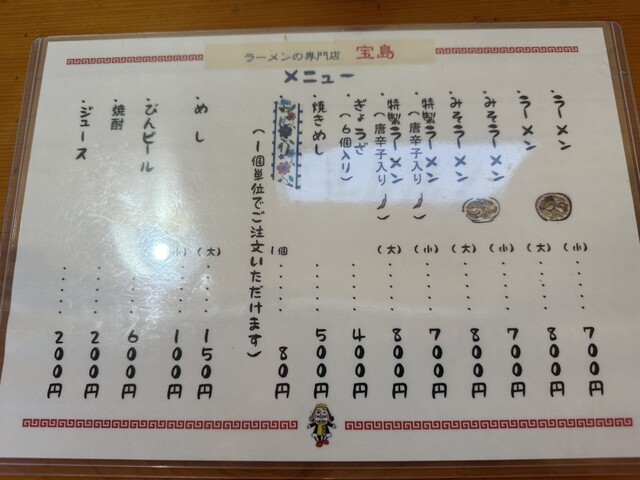 ラーメンの専門店 宝島
メニュー
・ラーメン (小) ・・・・・ 700円
・ラーメン (大) ・・・・・ 800円
・みそラーメン (小) ・・・・・ 700円
・みそラーメン (大) ・・・・・ 800円
・特製ラーメン (唐辛子入り) (小) ・・・・・ 700円
・特製ラーメン (唐辛子入り) (大) ・・・・・ 800円
・ぎょうざ (6個入り) ・・・・・ 400円
・焼きめし ・・・・・ 500円
1個 ・・・・・ 80円
(1個単位でご注文いただけます)
・めし (大) ・・・・・ 150円
(小) ・・・・・ 100円
・びんビール ・・・・・ 600円
・焼酎 ・・・・・ 200円
・ジュース ・・・・・ 200円